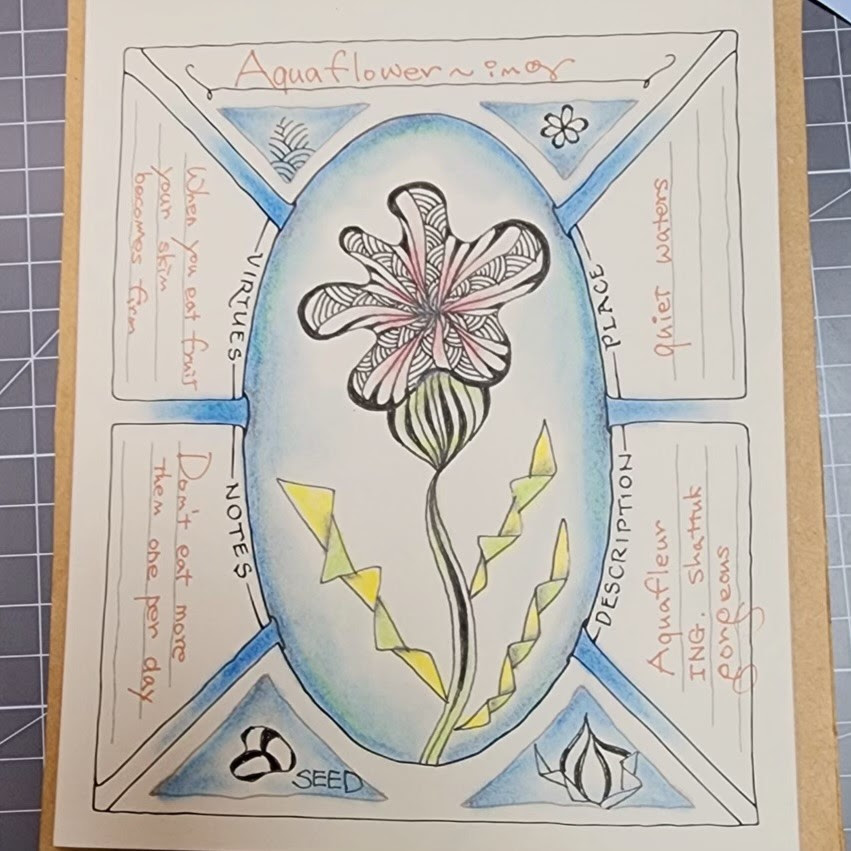 Aquaflower ~ imor
VIRTUES
When you eat fruit
your skin
becomes firm
PLACE
quiet waters
NOTES
Don't eat more
then one per day
DESCRIPTION
Aquafleur
ING. Shattuk
gorgeous
SEED